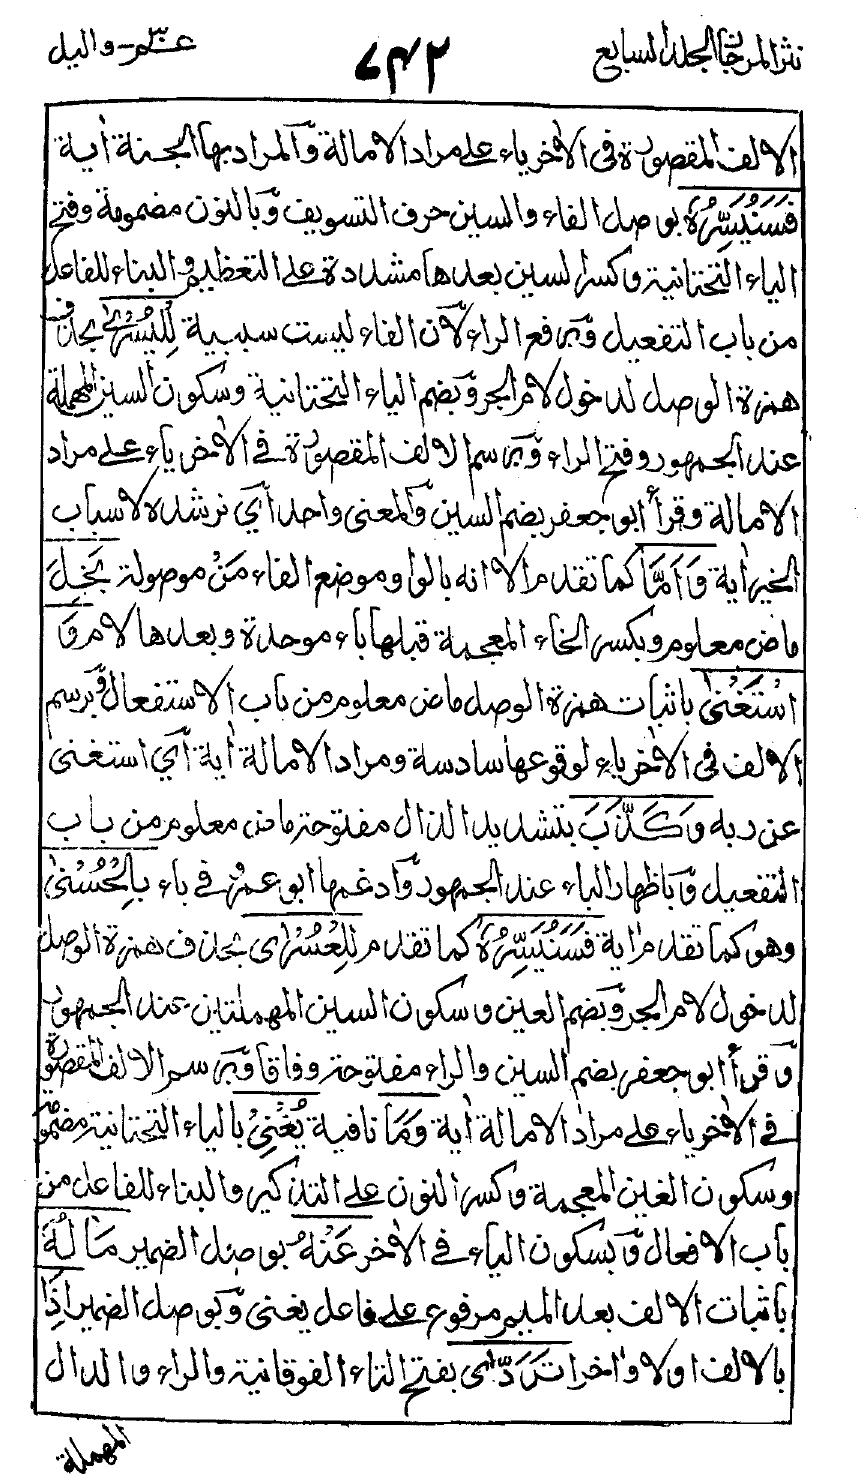 نثر المرجان المجلد السابع
٧٤٢
عم - واليل
الالف المقصورة فى الاٰخر ياء على مراد الامالة والمراد بها الجنة اٰية
فَسَنُيَسِّرُهٗ بوصل الفاء والسين حرف التسويف وبالنون مضمومة وفتح
الياء التحتانية وكسر السين بعدها مشددة على التعظيم والبناء للفاعل
من باب التفعيل وبرفع الراء لان الفاء ليست سببية لِلْيُسْرٰى بحذف
همزة الوصل لدخول لام الجر وبضم الياء التحتانية وسكون السين المهملة
عند الجمهور وفتح الراء وبرسم الالف المقصورة فى الاٰخر ياء على مراد
الامالة وقرأ ابو جعفر بضم السين والمعنى واحد اى نرشده لاسباب
الخير اٰية وَاَمَّا كما تقدم الا انه بالواو موضع الفاء مَنْ موصولة بَخِلَ
ماض معلوم وبكسر الخاء المعجمة قبلها باء موحدة وبعدها لام وَ
اسْتَغْنٰى باثبات همزة الوصل ماض معلوم من باب الاستفعال وبرسم
الالف فى الاٰخر ياء لوقوعها سادسة ومراد الامالة اٰية اى استغنى
عن ربه وَكَذَّبَ بتشديد الذال مفتوحة ماض معلوم من باب
التفعيل وباظهار الباء عند الجمهور وادغمها ابو عمرو فى باء بِالْحُسْنٰى
وهو كما تقدم اٰية فَسَنُيَسِّرُهٗ كما تقدم لِلْعُسْرٰى بحذف همزة الوصل
لدخول لام الجر وبضم العين وسكون السين المهملتين عند الجمهور
وقرأ ابو جعفر بضم السين والراء مفتوحة وفاقا وبرسم الالف المقصورة
فى الاٰخر ياء على مراد الامالة اٰية وَمَا نافية يُغْنِىْ بالياء التحتانية مضمومة
وسكون الغين المعجمة وكسر النون على التذكير والبناء للفاعل من
باب الافعال وبسكون الياء فى الاٰخر عَنْهُ بوصل الضمير مَالُهٗ
باثبات الالف بعد الميم مرفوع على فاعل يغنى وبوصل الضمير اِذَا
بالالف اولا واٰخرا تَرَدّٰى بفتح التاء الفوقانية والراء والدال
المهملة